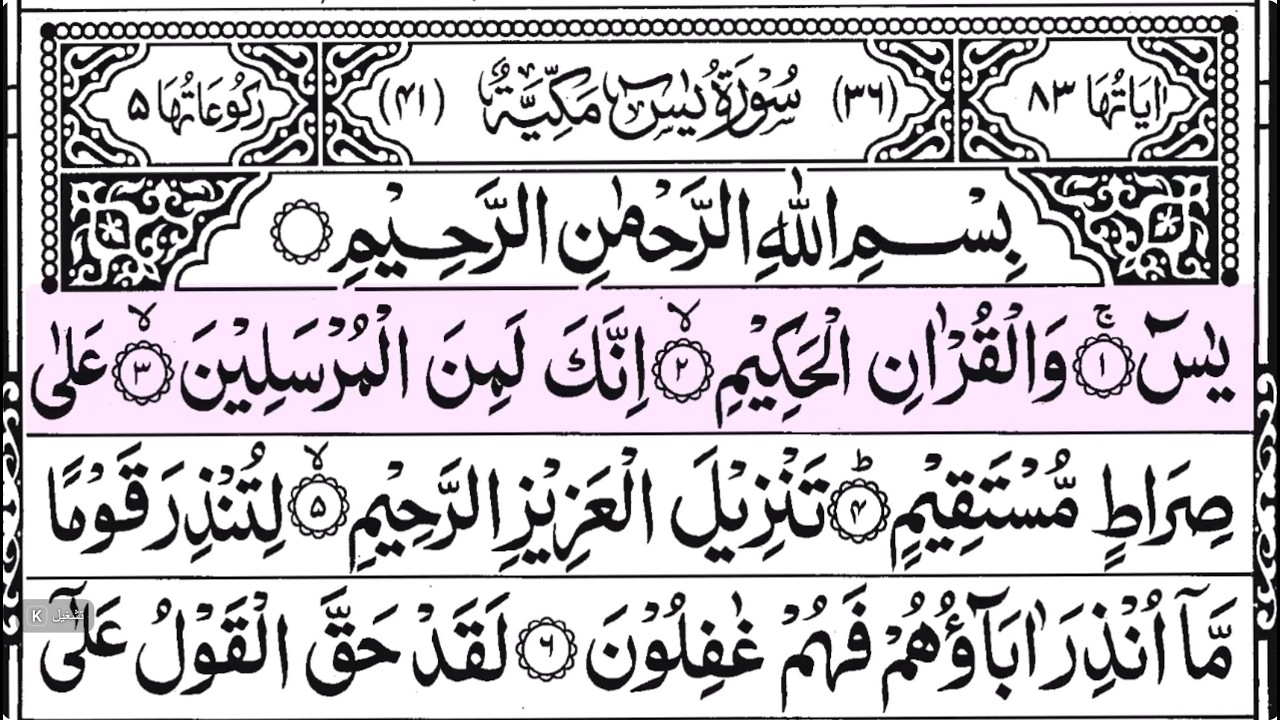 اٰيَاتُهَا ٨٣ (٣٦) سُوْرَةُ يٰسٓ مَكِّيَّةٌ (۴۱) رُكُوْعَاتُهَا ۵
بِسْمِ اللّٰهِ الرَّحْمٰنِ الرَّحِيْمِ
يٰسٓ ۚ‏﴿۱﴾ وَالْقُرْاٰنِ الْحَكِيْمِ ۙ‏﴿۲﴾ اِنَّكَ لَمِنَ الْمُرْسَلِيْنَ ۙ‏﴿۳﴾ عَلٰى
صِرَاطٍ مُّسْتَقِيْمٍ ؕ‏﴿۴﴾ تَنْزِيْلَ الْعَزِيْزِ الرَّحِيْمِ ۙ‏﴿۵﴾ لِتُنْذِرَ قَوْمًا
مَّاۤ اُنْذِرَ اٰبَآؤُهُمْ فَهُمْ غٰفِلُوْنَ ﴿۶﴾ لَقَدْ حَقَّ الْقَوْلُ عَلٰٓى
تشغيل K